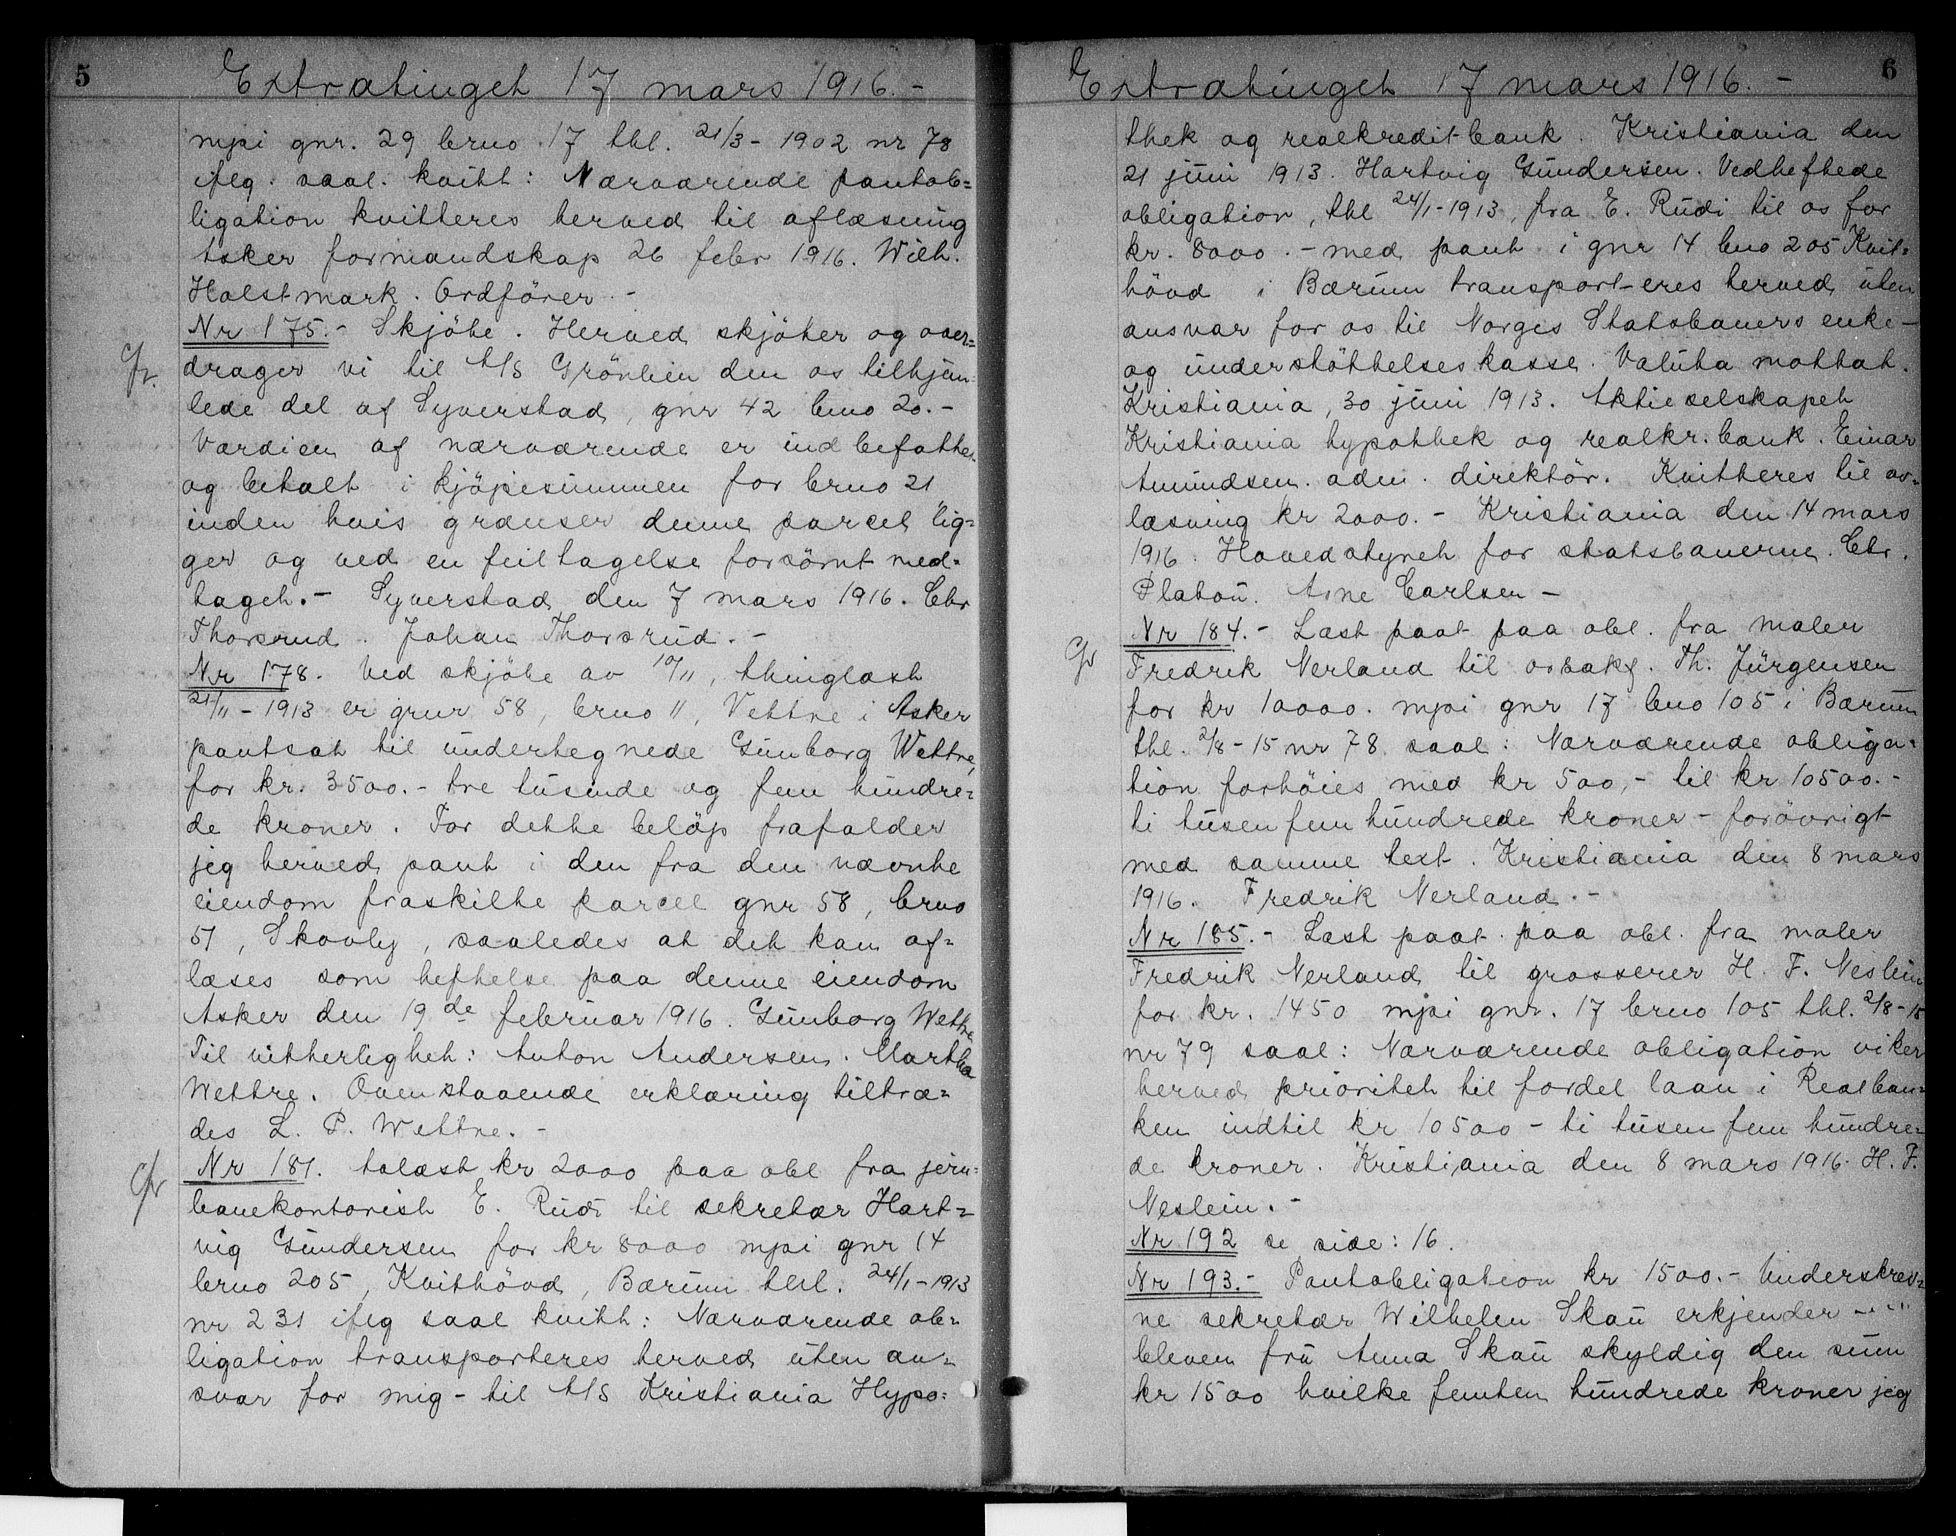 5
Extratinget 17 mars 1916.-
mpi gnr. 29 bruo 17 tbl. 21/3-1902 nr 78
ifeg. saal. kvitt: Nærværende pantob=
ligation kvitteres herved til aflæsning
Asker formandskap 26 febr 1916. Wilh.
Holstmark. Ordförer.-
Nr 175.- Skjöte. Herved skjöter og over=
drager vi til A/S Grönlien den os tilhjem-
lede del af Syverstad, gnr 42 bruo 20.-
Værdien af nærværende er indbefattet
og betalt i kjöpesummen for bruo 21
inden hvis grænser denne parcel lig=
ger og ved en feiltagelse forsömt med=
taget.- Syverstad den 7 mars 1916. Chr
Thorsrud. Johan Thorsrud.-
Nr 178. Ved skjöte av 10/11, thinglæst
21/11-1913 er grnr 58, bruo 11, Vettre i Asker
pantsat til undertegnede Gunborg Wettre,
for kr. 3500.- tre tusinde og fem hundre=
de kroner. For dette belöp frafalder
jeg herved pant i den fra den nævnte
eiendom fraskilte parcel gnr 58, bruo
51, Skovly, saaledes at det kan af=
læses som heftelse paa denne eiendom
Asker den 19de februar 1916. Gunborg Wettre
Til vitterlighet: Anton Andersen. Martha
Wettre. Ovenstaaende erklæring tiltræ=
des L. P. Wettre.-
Nr 181. Avlæst kr 2000 paa obl fra jern=
banekontorist E. Rudi til sekretær Hart=
vig Gundersen for kr 8000 mpi gnr 14
bruo 205, Kvithövd, Bærum tbl. 24/1-1913
nr 231 ifeg saal kvitt: Nærværende ob=
ligation transporteres herved uten an=
svar for mig - til A/S Kristiania Hypo=
6
Extratinget 17 mars 1916.-
thek og realkreditbank. Kristiania den
21 juni 1913. Hartvig Gundersen. Vedheftede
obligation, tbl 24/1-1913, fra E. Rudi til os for
kr. 8000.- med pant i gnr 14 bno 205 Kvit=
hövd i Bærum transporteres herved uten
ansvar for os til Norges Statsbaners enke-
og understöttelseskasse. Valuta mottat.
Kristiania, 30 juni 1913. Aktieselskapet
Kristiania hypothek og realkr. bank. Einar
Amundsen. adm. direktör. Kvitteres til av=
læsning kr 2000.- Kristiania den 14 mars
1916. Hovedstyret for statsbanerne. Chr.
Platou. Arne Carlsen-
Nr 184.- Læst paat paa obl. fra maler
Fredrik Nerland til o.r.sakf. Th. Jürgensen
for kr 10000. mpi gnr 17 bno 105 i Bærum
tbl. 2/8-15 nr 78 saal: Nærværende obliga=
tion forhöies med kr 500,- til kr 10500.-
ti tusen fem hundrede kroner - forövrigt
med samme text. Kristiania den 8 mars
1916. Fredrik Nerland.-
Nr 185.- Læst paat. paa obl. fra maler
Fredrik Nerland til grosserer H. F. Neslein
for kr. 1450 mpi gnr. 17 bruo 105 tbl. 2/8-15
nr 79 saal: Nærværende obligation viker
herved prioritet til fordel laan i Realban=
ken indtil kr 10500 - ti tusen fem hundre=
de kroner. Kristiania den 8 mars 1916. H. F.
Neslein.-
Nr 192 se side: 16.
Nr 193.- Pantobligation kr 1500.- Underskrev=
ne sekretær Wilhelm Skau erkjender
bleven fru Anna Skau skyldig den sum
kr 1500 hvilke femten hundrede kroner jeg